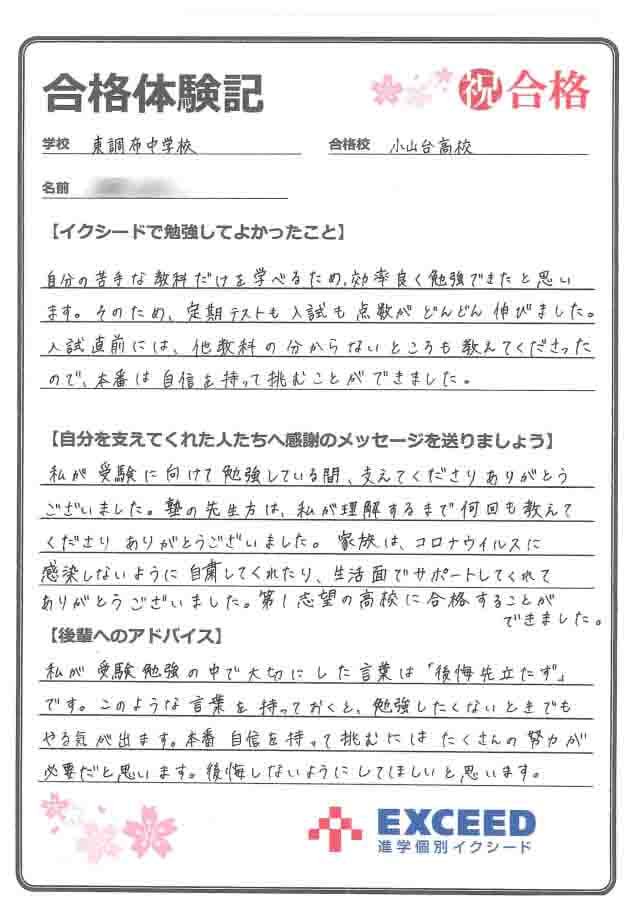 合格体験記
祝 合格
学校 東調布中学校
合格校 小山台高校
名前
【イクシードで勉強してよかったこと】
自分の苦手な教科だけを学べるため、効率良く勉強できたと思い
ます。そのため、定期テストも入試も点数がどんどん伸びました。
入試直前には、他教科の分からないところも教えてくださった
ので、本番は自信を持って挑むことができました。
【自分を支えてくれた人たちへ感謝のメッセージを送りましょう】
私が受験に向けて勉強している間、支えてくださりありがとう
ございました。塾の先生方は、私が理解するまで何回も教えて
くださりありがとうございました。家族は、コロナウイルスに
感染しないように自粛してくれたり、生活面でサポートしてくれて
ありがとうございました。第1志望の高校に合格することが
できました。
【後輩へのアドバイス】
私が受験勉強の中で大切にした言葉は「後悔先立たず」
です。このような言葉を持っておくと、勉強したくないときでも
やる気が出ます。本番自信を持って挑むにはたくさんの努力が
必要だと思います。後悔しないようにしてほしいと思います。
EXCEED
進学個別イクシード